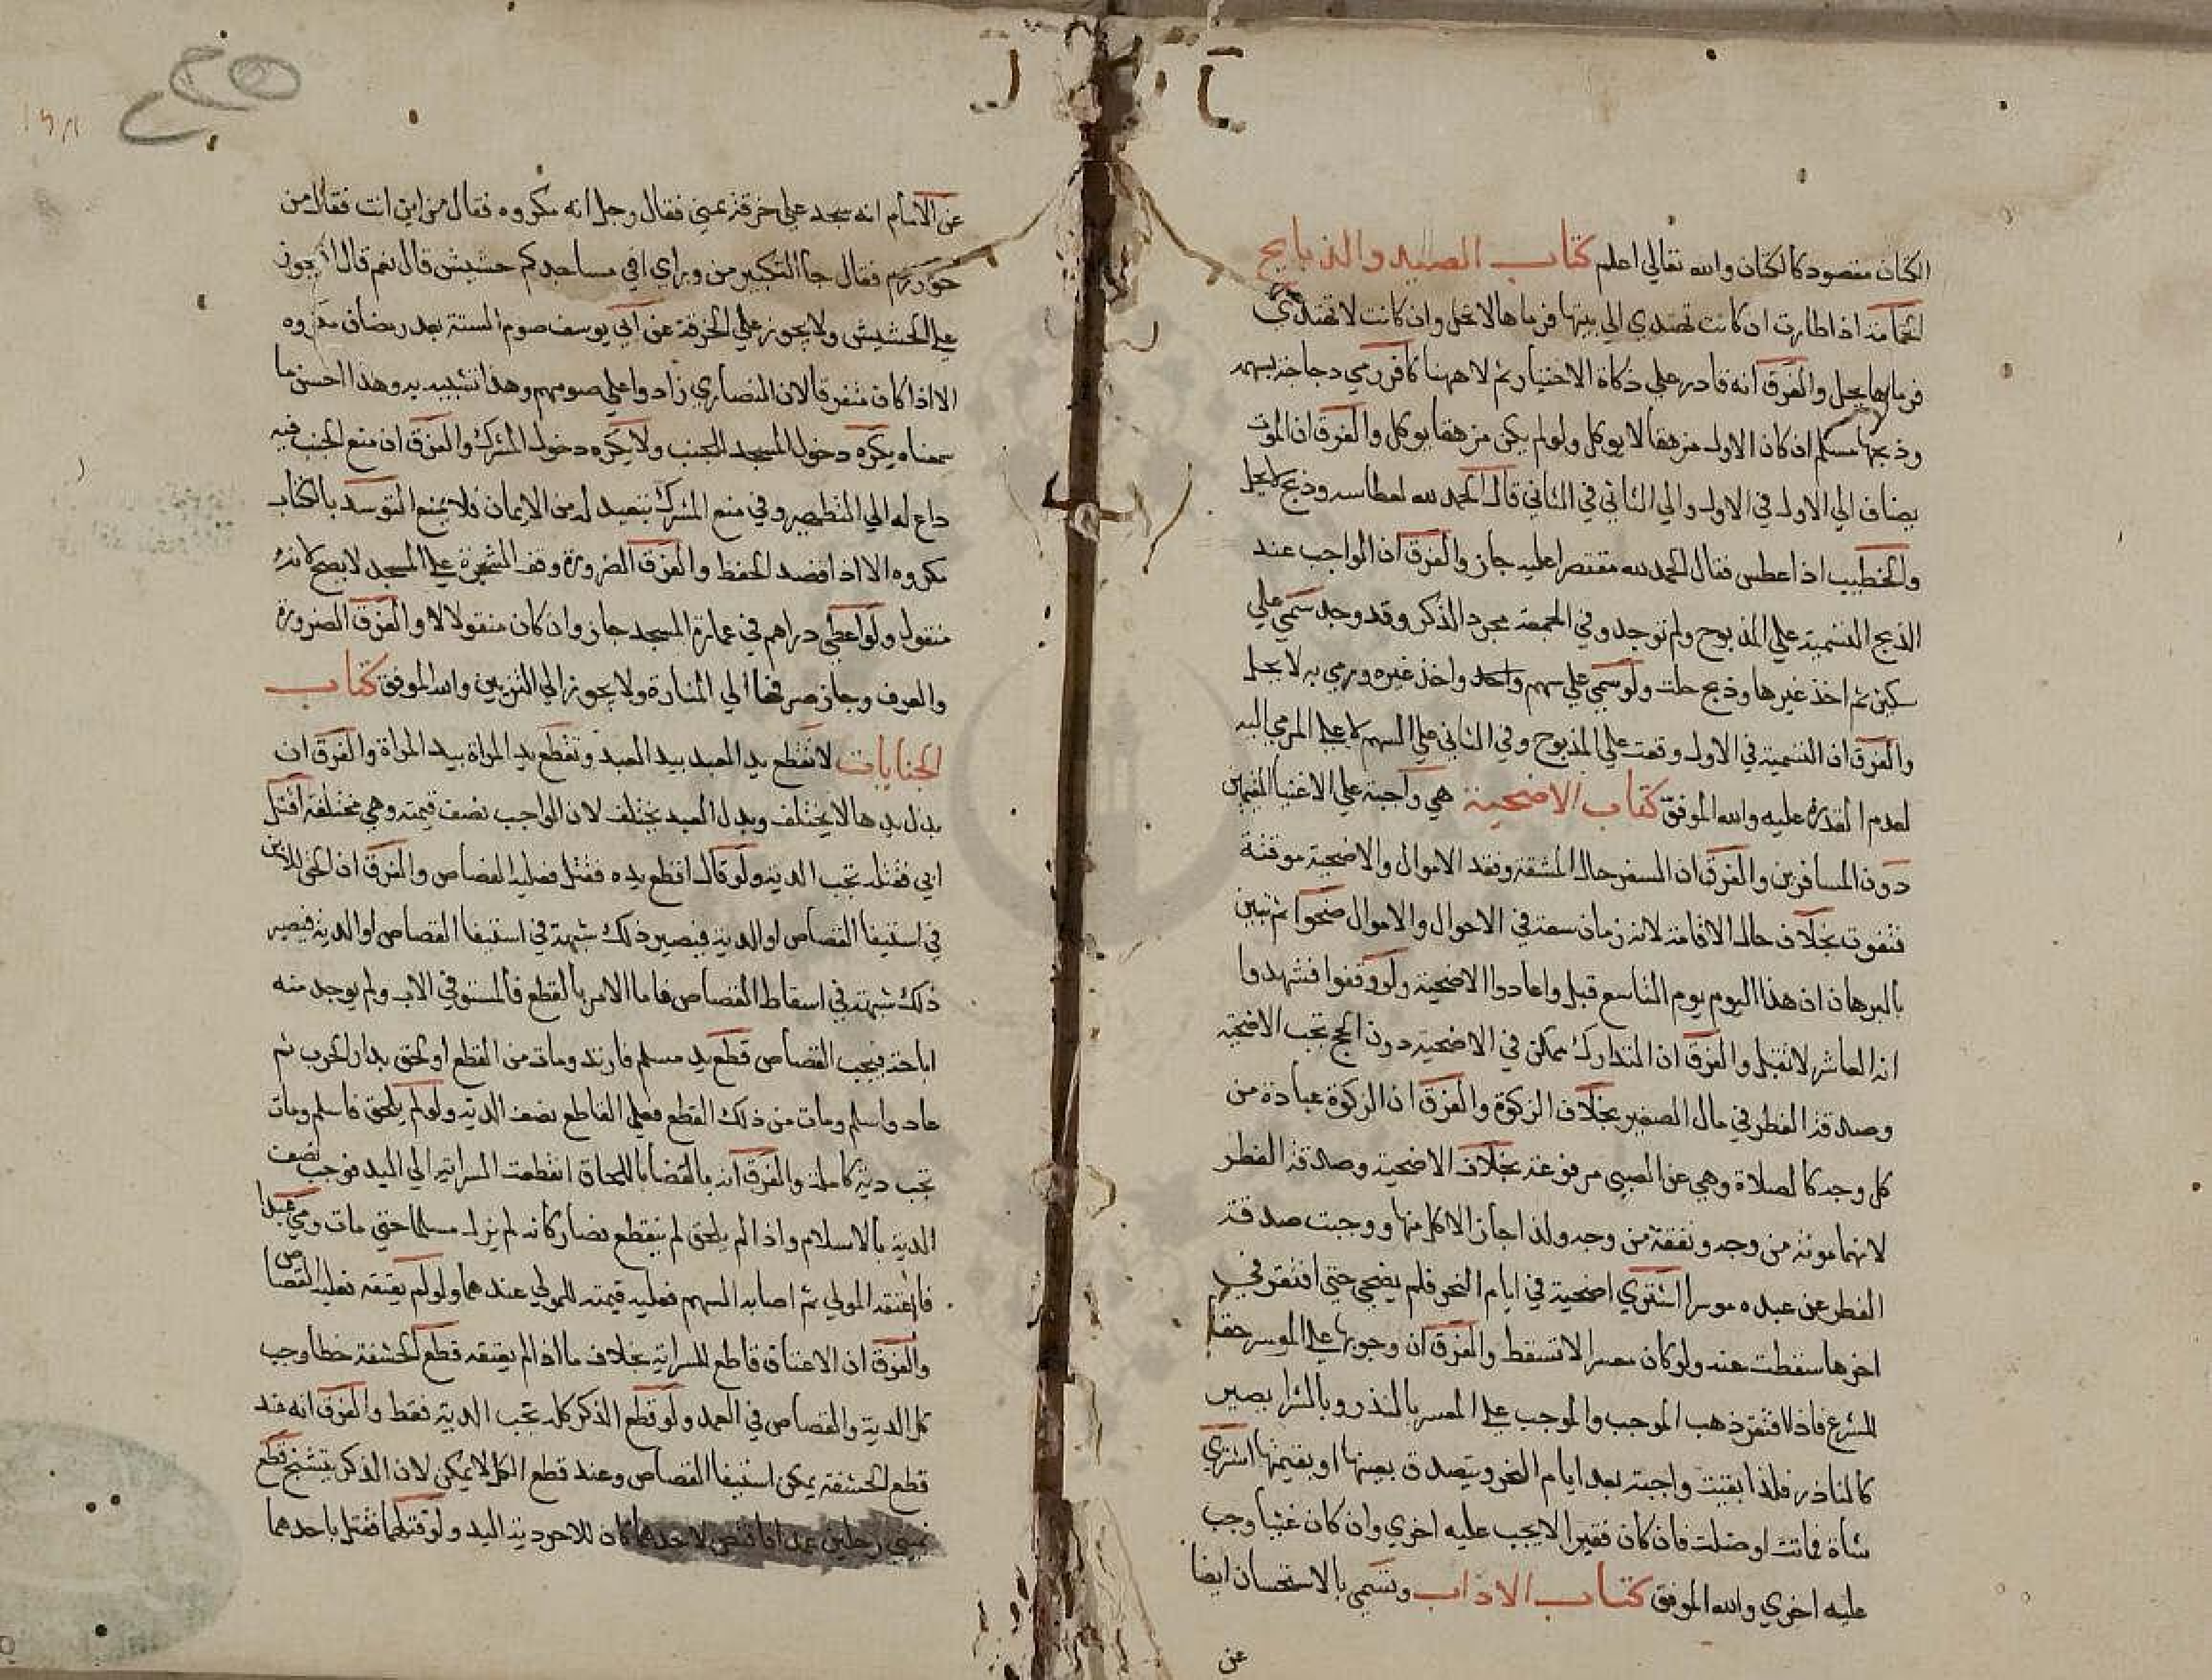 الكتان مقصود كالكتان والله تعالى اعلم كتاب الصيد والذبايح
الحمامة اذا طارت ان كانت تهتدي الي بيتها فرماها لا تحل وان كانت لا تهتدي
فرماها يحل والفرق انه قادر علي ذكاة الاختيار ثم لا ههنا كافر رمي دجاجة بسهم
وذبحها مسلم ان كان الاول مزهقا لا يوكل ولو لم يكن مزهقا يوكل والفرق ان الموت
يضاف الي الاول في الاول والي الثاني في الثاني قال الحمد لله لعطاسه وذبح لا يحل
والخطيب اذا عطس فقال الحمد لله مقتصرا عليه جاز والفرق ان الواجب عند
الذبح التسمية علي المذبوح ولم توجد وفي الجمعة مجرد الذكر وقد وجد سمي علي
سكين ثم اخذ غيرها وذبح حلت ولو سمي علي سهم واخذ غيره ورمي به لا يحل
والفرق ان التسمية في الاول وقعت علي المذبوح وفي الثاني علي السهم لا علي المرمي اليه
لعدم القدرة عليه والله الموفق كتاب الاضحية هي واجبة علي الاغنيا المقيمين
دون المسافرين والفرق ان السفر حال المشقة وفقد الاموال والاضحية موقتة
فتفوت بخلاف حال الاقامة لانه زمان سعة في الاحوال والاموال ضحوا ثم تبين
بالبرهان ان هذا اليوم يوم التاسع قبل واعادوا الاضحية ولو وقفوا فشهدوا
انه العاشر لا تقبل والفرق ان التدارك ممكن في الاضحية دون الحج تجب الاضحية
وصدقة الفطر في مال الصغير بخلاف الزكوة والفرق ان الزكوة عبادة من
كل وجه كالصلاة وهي عن الصبي مرفوعة بخلاف الاضحية وصدقة الفطر
لانهما مونة من وجه ونفقة من وجه ولذا جاز الاكل منها ووجبت صدقة
الفطر عن عبده موسرا اشتري اضحية في ايام النحر فلم يضحي حتي افتقر في
اخرها سقطت عنه ولو كان معسرا لا تسقط والفرق ان وجوبها علي الموسر حقا
للشرع فاذا افتقر ذهب الموجب والموجب علي المعسر بالنذر وبالشرا يصير
كالناذر فلذا بقيت واجبة بعد ايام النحر ويتصدق بعينها او بقيمتها اشتري
شاة فماتت او ضلت فان كان فقيرا لا يجب عليه اخري وان كان غنيا وجب
عليه اخري والله الموفق كتاب الاداب وتسمي بالاستحسان ايضا
عن
عن الامام انه سجد علي خرقة بمني فقال رجل انه مكروه فقال من اين انت فقال من
خوارزم فقال جا التكبير من وراي افي مساجدكم حشيش قال نعم قال اتجوز
علي الحشيش ولا يجوز علي الخرقة عن ابي يوسف صوم الستة بعد رمضان مكروه
الا اذا كان متفرقا لان النصاري زادوا علي صومهم وهذا تشبيه به وهذا احسن ما
سمعناه يكره دخول المسجد للجنب ولا يكره دخول المشرك والفرق ان منع الجنب فيه
داع له الي التطهير وفي منع المشرك تبعيد له من الايمان فلا يمنع التوسد بالكتاب
مكروه الا اذا قصد الحفظ والفرق الضرورة وقف الشجرة علي المسجد لا يصح لانه
منقول ولو اعطي دراهم في عمارة المسجد جاز وان كان منقولا لا والفرق الضرورة
والعرف وجاز صرفها الي المنارة ولا يجوز الي التزيين والله الموفق كتاب
الجنايات لا تقطع يد العبد بيد العبد وتقطع يد المراة بيد المراة والفرق ان
بدل يدها لا يختلف وبدل العبد يختلف لان الواجب نصف قيمته وهي مختلفة اقتل
ابي فقتله تجب الدية ولو قال اقطع يده فقتل فعليه القصاص والفرق ان الحق للابن
في استيفا القصاص او الدية فيصير ذلك شبهة في استيفا القصاص او الدية فيصير
ذلك شبهة في اسقاط القصاص فاما الامر بالقطع فالمستوفي الاب ولم يوجد منه
اباحة فيجب القصاص قطع يد مسلم فارتد ومات من القطع او لحق بدار الحرب ثم
عاد واسلم ومات من ذلك القطع فعلي القاطع نصف الدية ولو لم يلحق فاسلم ومات
تجب دية كاملة والفرق انه بالقضا باللحاق انقطعت السراية الي اليد فوجب نصف
الدية بالاسلام واذا لم يلحق لم ينقطع فصار كانه لم يزل مسلما حتي مات رمي عبدا
فاعتقه المولي ثم اصابه السهم فعليه قيمته للمولي عندهما ولو لم يعتقه فعليه القصاص
والفرق ان الاعتاق قاطع للسراية بخلاف ما اذا لم يعتقه قطع الحشفة خطا وجب
كل الدية والقصاص في العمد ولو قطع الذكر كله تجب الدية فقط والفرق انه عند
قطع الحشفة يمكن استيفا القصاص وعند قطع الكل لا يمكن لان الذكر يتشنج قطع
يميني رجلين عمدا فاقتص لاحدهما كان للاخر دية اليد ولو قتلهما فقتل باحدهما